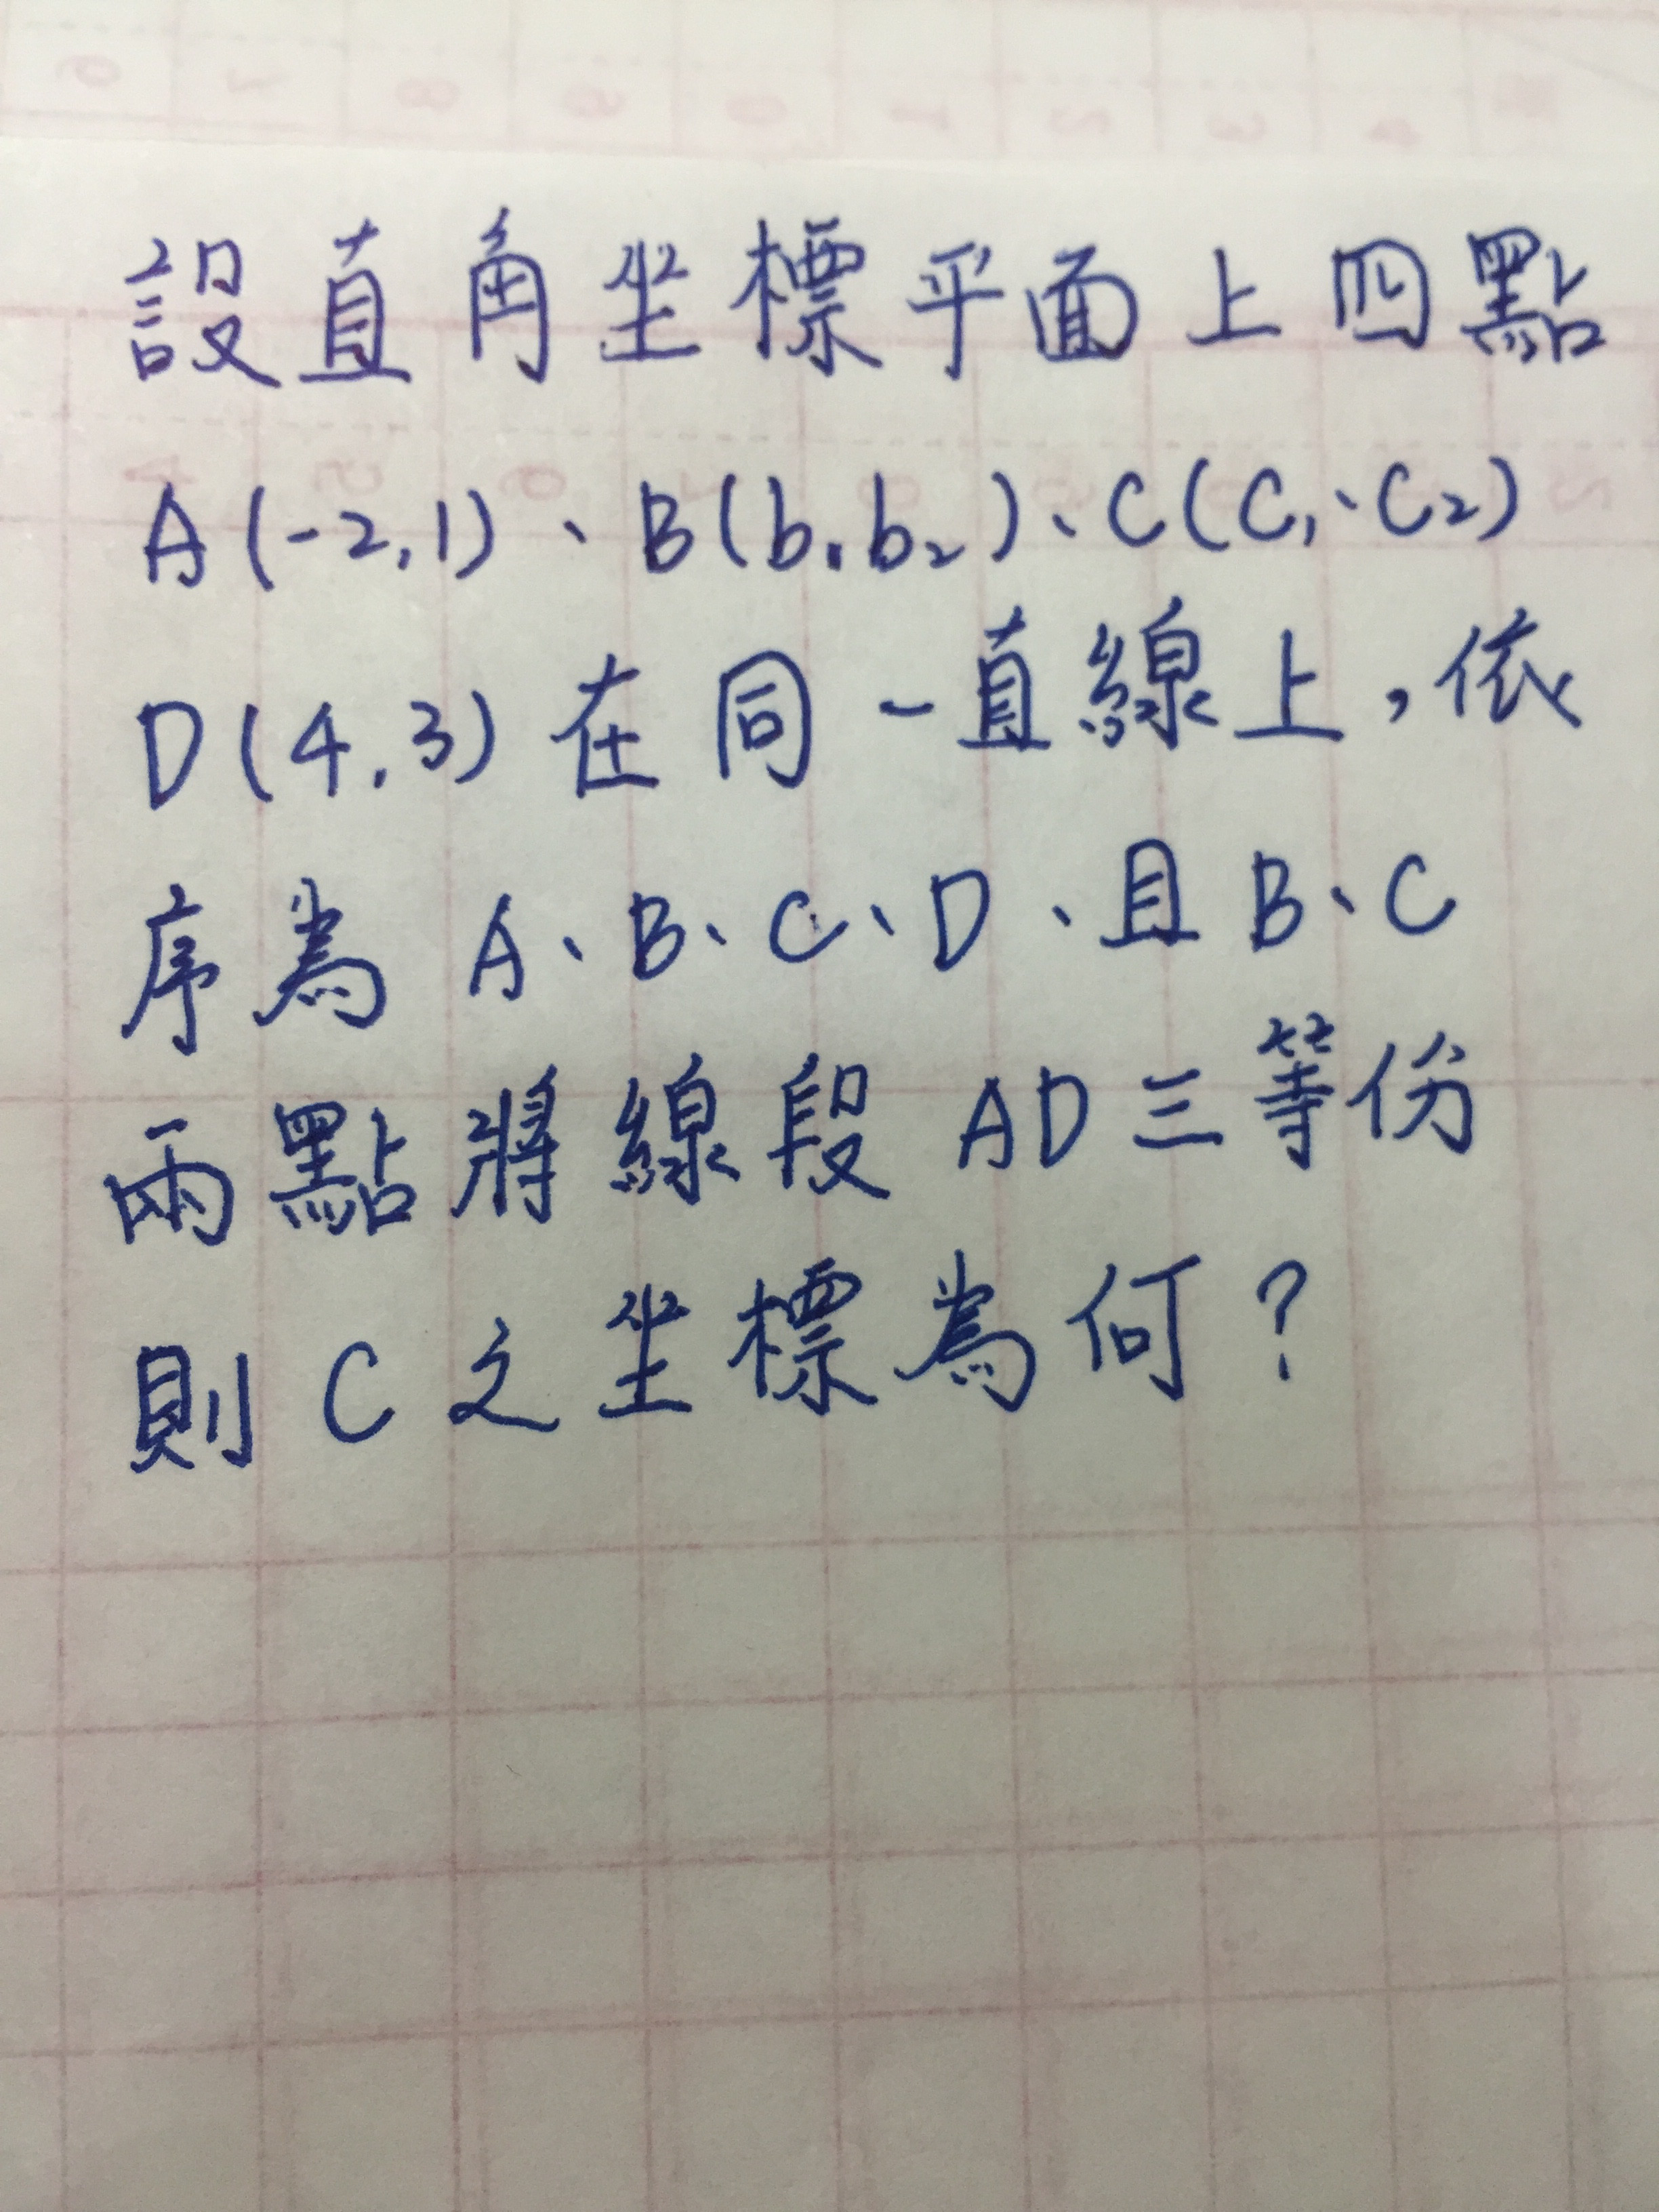 設直角坐標平面上四點
A(-2,1)、B(b₁,b₂)、C(C₁、C₂)
D(4,3)在同一直線上,依
序為 A、B、C、D、且 B、C
兩點將線段 AD 三等份
則 C 之坐標為何?